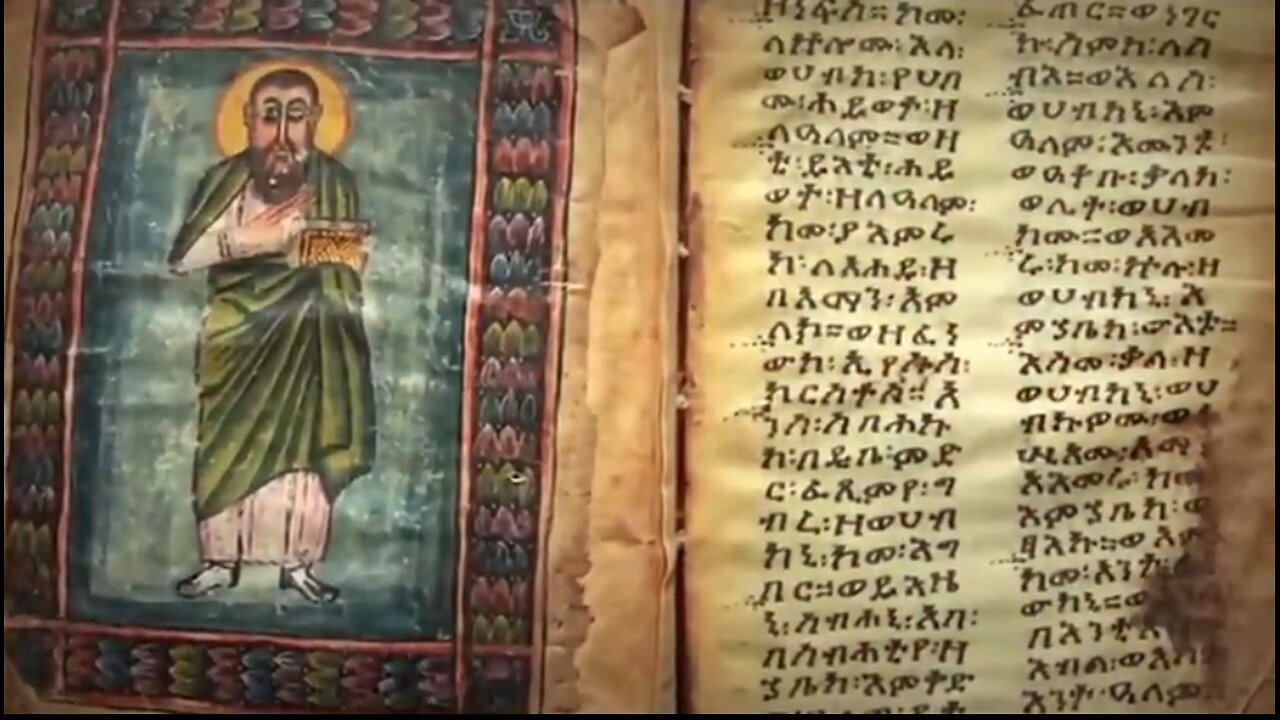 ዘነፍስ። ከመ፡
ለኵሎሙ፡ እለ፡
ወሀብከ፡ የሀበ
ሙ፡ ሕይወተ፡ ዘ
ለዓለም። ወዛ
ቲ፡ ይእቲ፡ ሕይ
ወት፡ ዘለዓለም፡
ከመ፡ ያእምሩ
ከ፡ ለአሐዱ፡ ዘ
በአማን፡ አም
ላክ። ወዘፈነ
ውከ፡ ኢየሱስ፡
ክርስቶስ። አ
ንሰ፡ ሰባሕኩ
ከ፡ በዲበ፡ ምድ
ር፡ ፈጺምየ፡ ግ
ብረ፡ ዘወሀብ
ከኒ፡ ከመ፡ እግ
በር። ወይእዜ
ኒ፡ ሰብሐኒ፡ አባ፡
በስብሐቲየ፡ ዘ
ኀቤከ፡ እምቅድ
ፈጠር። ወነገር
ኩ፡ ስመከ፡ ለሰ
ብእ። ወእለሰ፡
ወሀብከኒ፡ እም
ዓለም፡ እሙንቱ፡
ወዓቀቡ፡ ቃለከ፡
ወሊተ፡ ወሀብ
ከሙ። ወአእመ
ሩ፡ ከመ፡ ኵሉ፡ ዘ
ወሀብከኒ፡ እ
ምኀቤከ፡ ውእቱ።
እስመ፡ ቃለ፡ ዘ
ወሀብከኒ፡ ወሀ
ብኩዎሙ፡
አእመሩ፡ ከመ
እምኀቤከ፡ ወ
ፃእኩ። ወአም
ከመ፡ አንተ፡
ውከኒ። ወ
በእንቲአ
እብል፡
እንተ፡ ዓለም፡